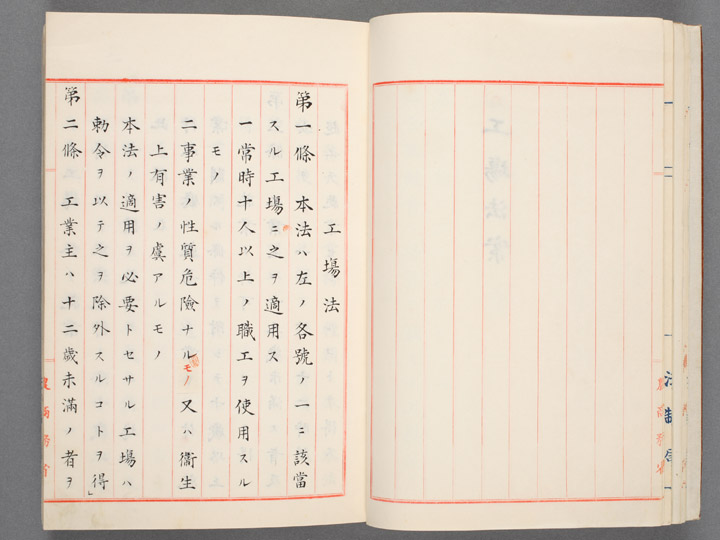 工場法
第一條 本法ハ左ノ各號ノ一ニ該當
スル工場ニ之ヲ適用ス
一 常時十人以上ノ職工ヲ使用スル
モノ
二 事業ノ性質危險ナルモノ又ハ衞生
上有害ノ虞アルモノ
本法ノ適用ヲ必要トセサル工場ハ
勅令ヲ以テ之ヲ除外スルコトヲ得」
第二條 工業主ハ十二歳未滿ノ者ヲ
農商務省